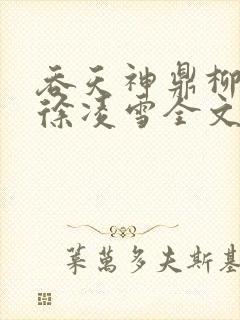 吞天神鼎柳
徐凌雪全文
莱萬多夫斯基